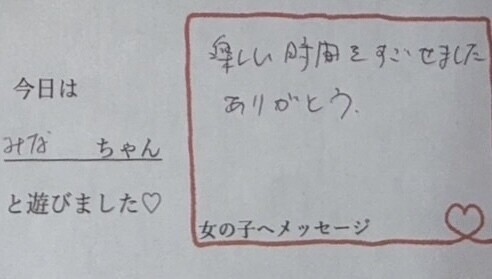 今日は
みな ちゃん
と遊びました♡
楽しい時間をすごせました
ありがとう.
女の子へメッセージ